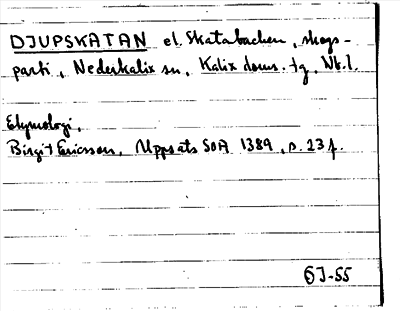 DJUPSKATAN el. Skatabacken, skogs-
parti, Nederkalix sn, Kalix doms. tg, Nb.l.
Etymologi.
Birgit Ericsson, Uppsats SOA 1389, s. 23 f.
GJ-55